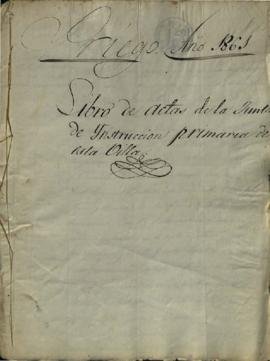 Priego Año 1861
Libro de actas de la Junta
de Instruccion primaria de
esta Villa